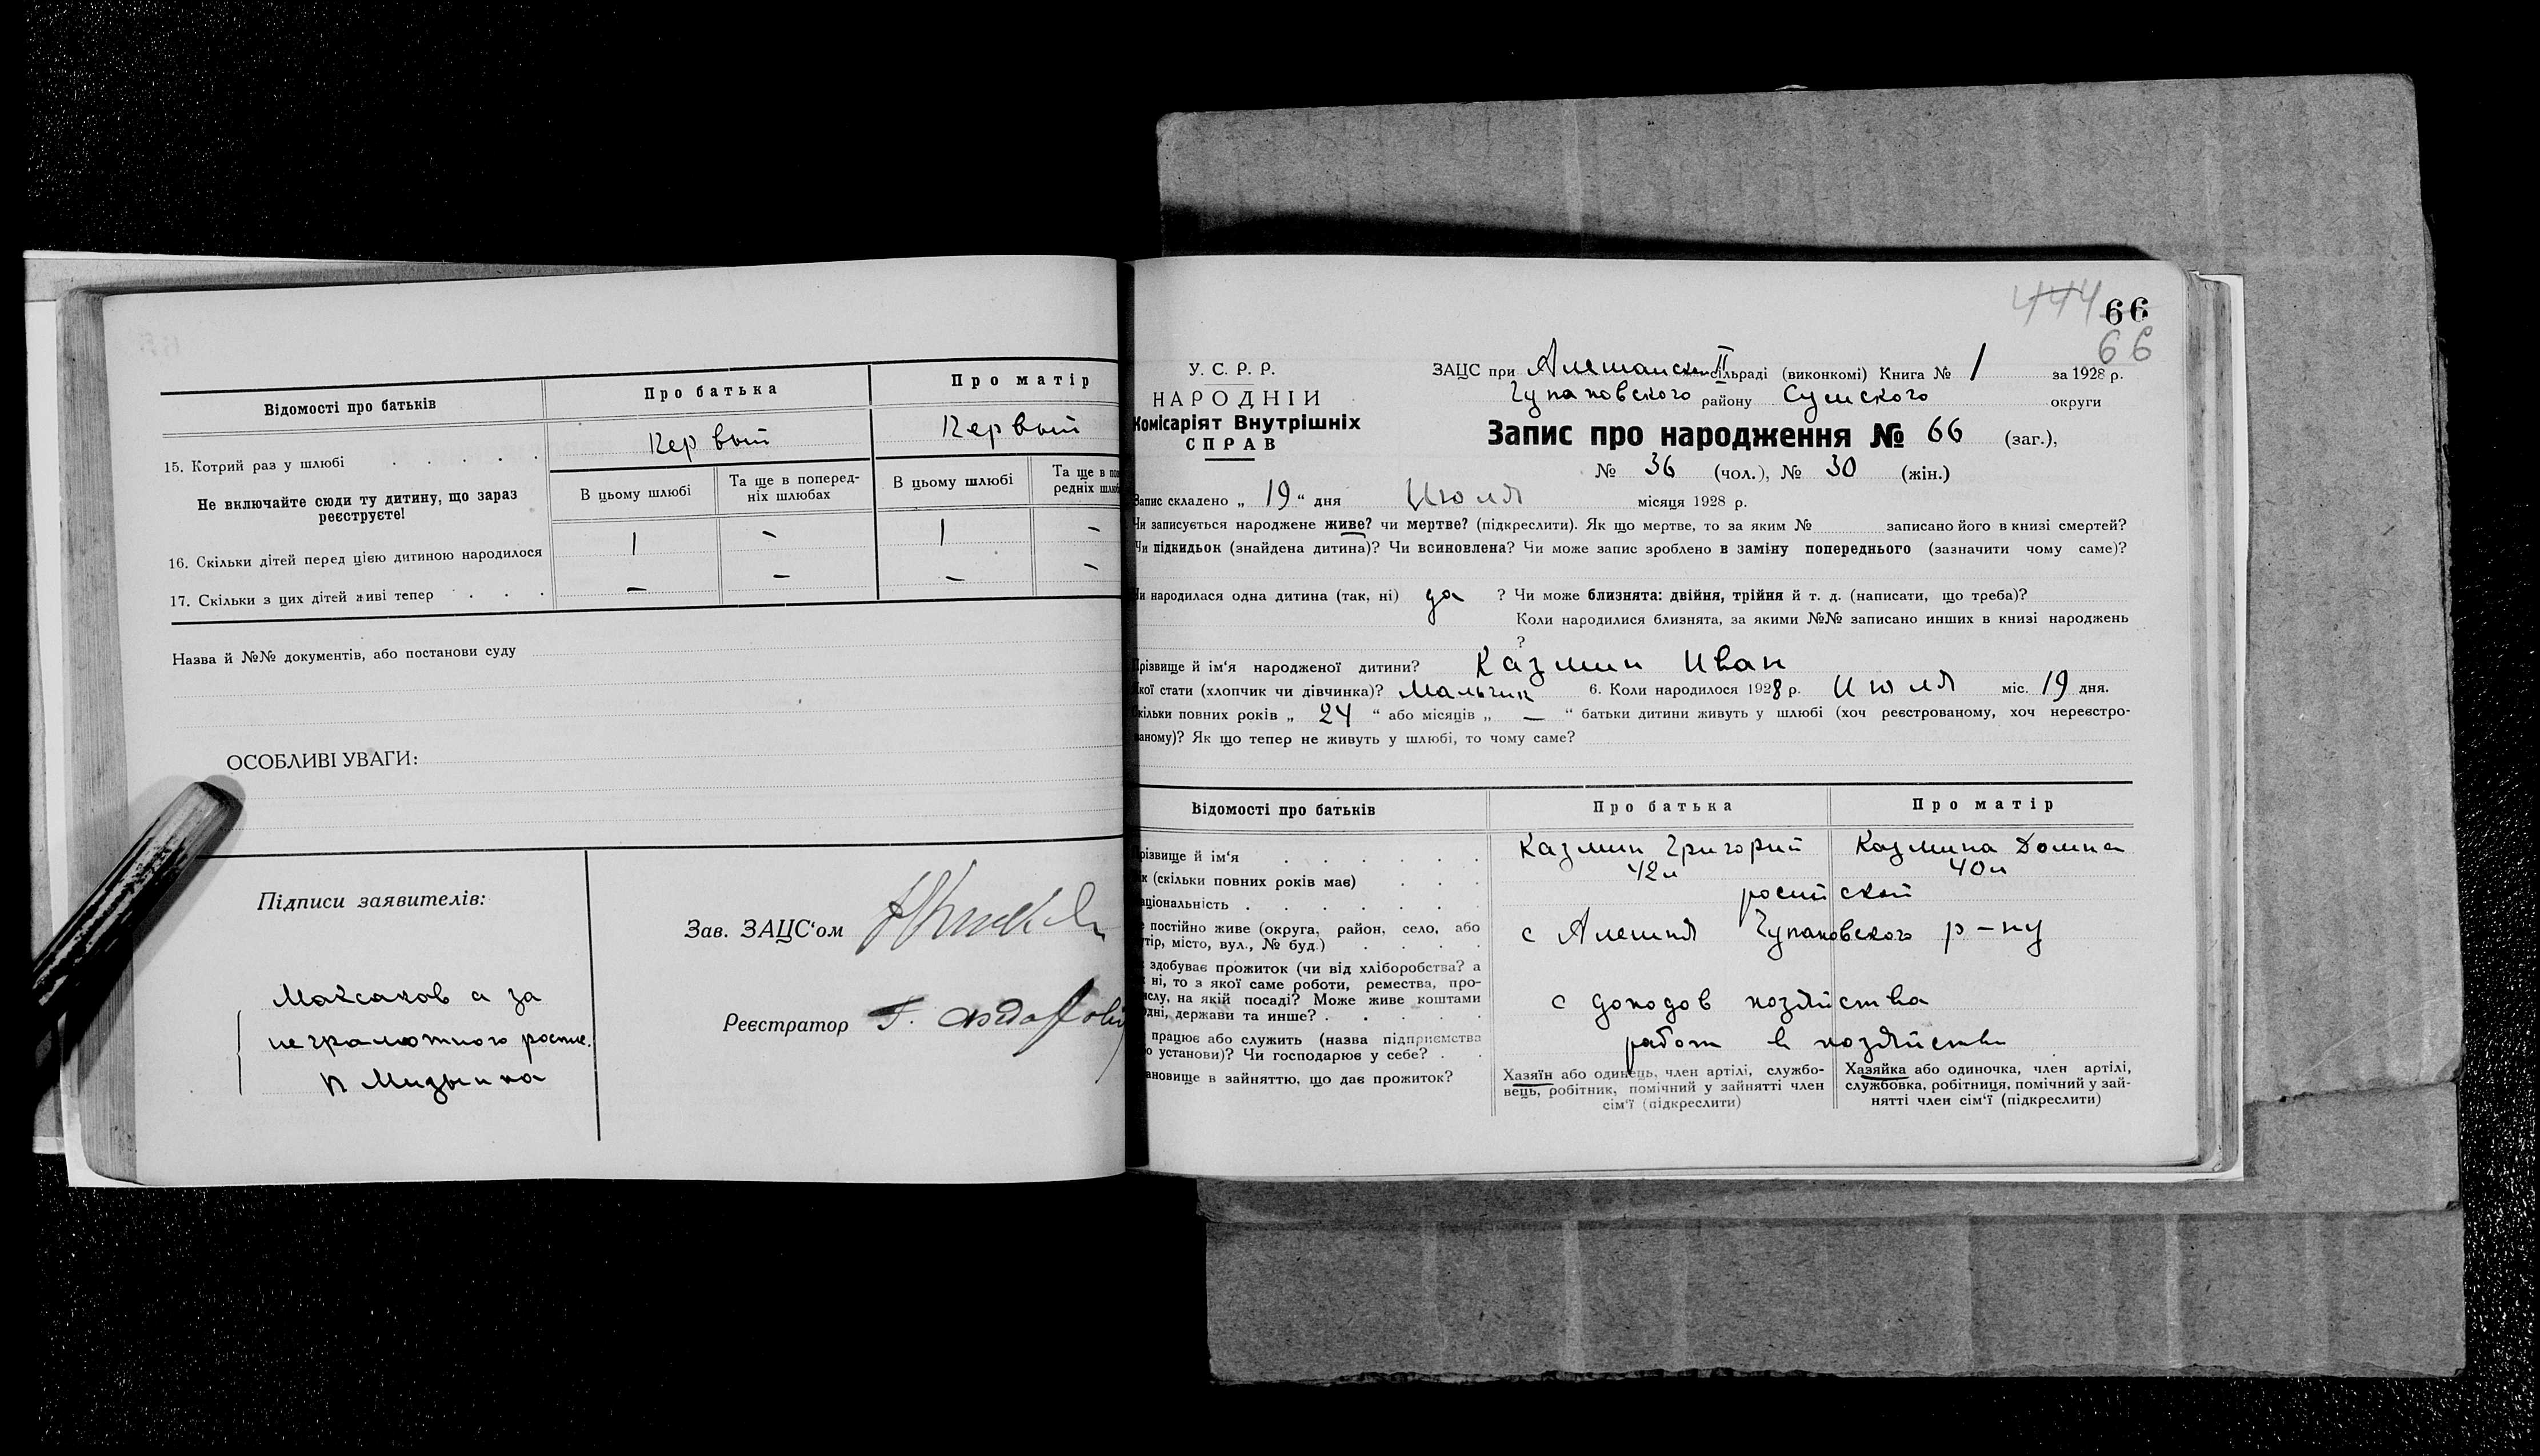 Відомості про батьків
Про батька
Про матір
15. Котрий раз у шлюбі
Первый
Первый
Не включайте сюди ту дитину, що зараз
реєструєте!
В цьому шлюбі
Та ще в поперед-
ніх шлюбах
В цьому шлюбі
Та ще в по
редніх шлю
16. Скільки дітей перед цією дитиною народилося
1
–
1
–
17. Скільки з цих дітей живі тепер
–
–
–
–
Назва й №№ документів, або постанови суду
ОСОБЛИВІ УВАГИ:
Підписи заявителів:
Майсаков а за
неграмотного роспис.
Зав. ЗАЦС‘ом
Реєстратор
444 66
66
У. С. Р. Р.
НАРОДНІЙ
Комісаріят Внутрішніх
СПРАВ
ЗАЦС при Алешанском II сільраді (виконкомі) Книга № 1 за 1928 р.
Чупаховского району Сумского округи
Запис про народження № 66 (заг.),
№ 36 (чол.), № 30 (жін.)
Запис складено „ 19 “ дня Июля місяця 1928 р.
Чи записується народжене живе? чи мертве? (підкреслити). Як що мертве, то за яким № записано його в книзі смертей?
Чи підкидьок (знайдена дитина)? Чи всиновлена? Чи може запис зроблено в заміну попереднього (зазначити чому саме)?
Чи народилася одна дитина (так, ні) да ? Чи може близнята: двійня, трійня й т. д. (написати, що треба)?
Коли народилися близнята, за якими №№ записано инших в книзі народжень
?
Прізвище й ім‘я народженої дитини? Казмин Иван
Якої стати (хлопчик чи дівчинка)? Мальчик 6. Коли народилося 1928 р. Июля міс. 19 дня.
Скільки повних років „ 24 “ або місяців „ — “ батьки дитини живуть у шлюбі (хоч реєстрованому, хоч нереєстро-
ваному)? Як що тепер не живуть у шлюбі, то чому саме?
Відомості про батьків
Про батька
Про матір
різвище й ім‘я
Казмин Григорий
Казмина Домна
к (скільки повних років має)
42л
40л
аціональність
росийской
е постійно живе (округа, район, село, або
тір, місто, вул., № буд.)
с Алешня Чупаховского р-ну
здобуває прожиток (чи від хліборобства? а
ні, то з якої саме роботи, ремества, про-
ислу, на якій посаді? Може живе коштами
одні, держави та инше?
с доходов хозяйства
працює або служить (назва підприємства
о установи)? Чи господарює у себе?
работ в хозяйстве
ановище в зайняттю, що дає прожиток?
Хазяїн або одинець, член артілі, службо-
вець, робітник, помічний у зайнятті член
сім‘ї (підкреслити)
Хазяйка або одиночка, член артілі,
службовка, робітниця, помічний у зай-
нятті член сім‘ї (підкреслити)